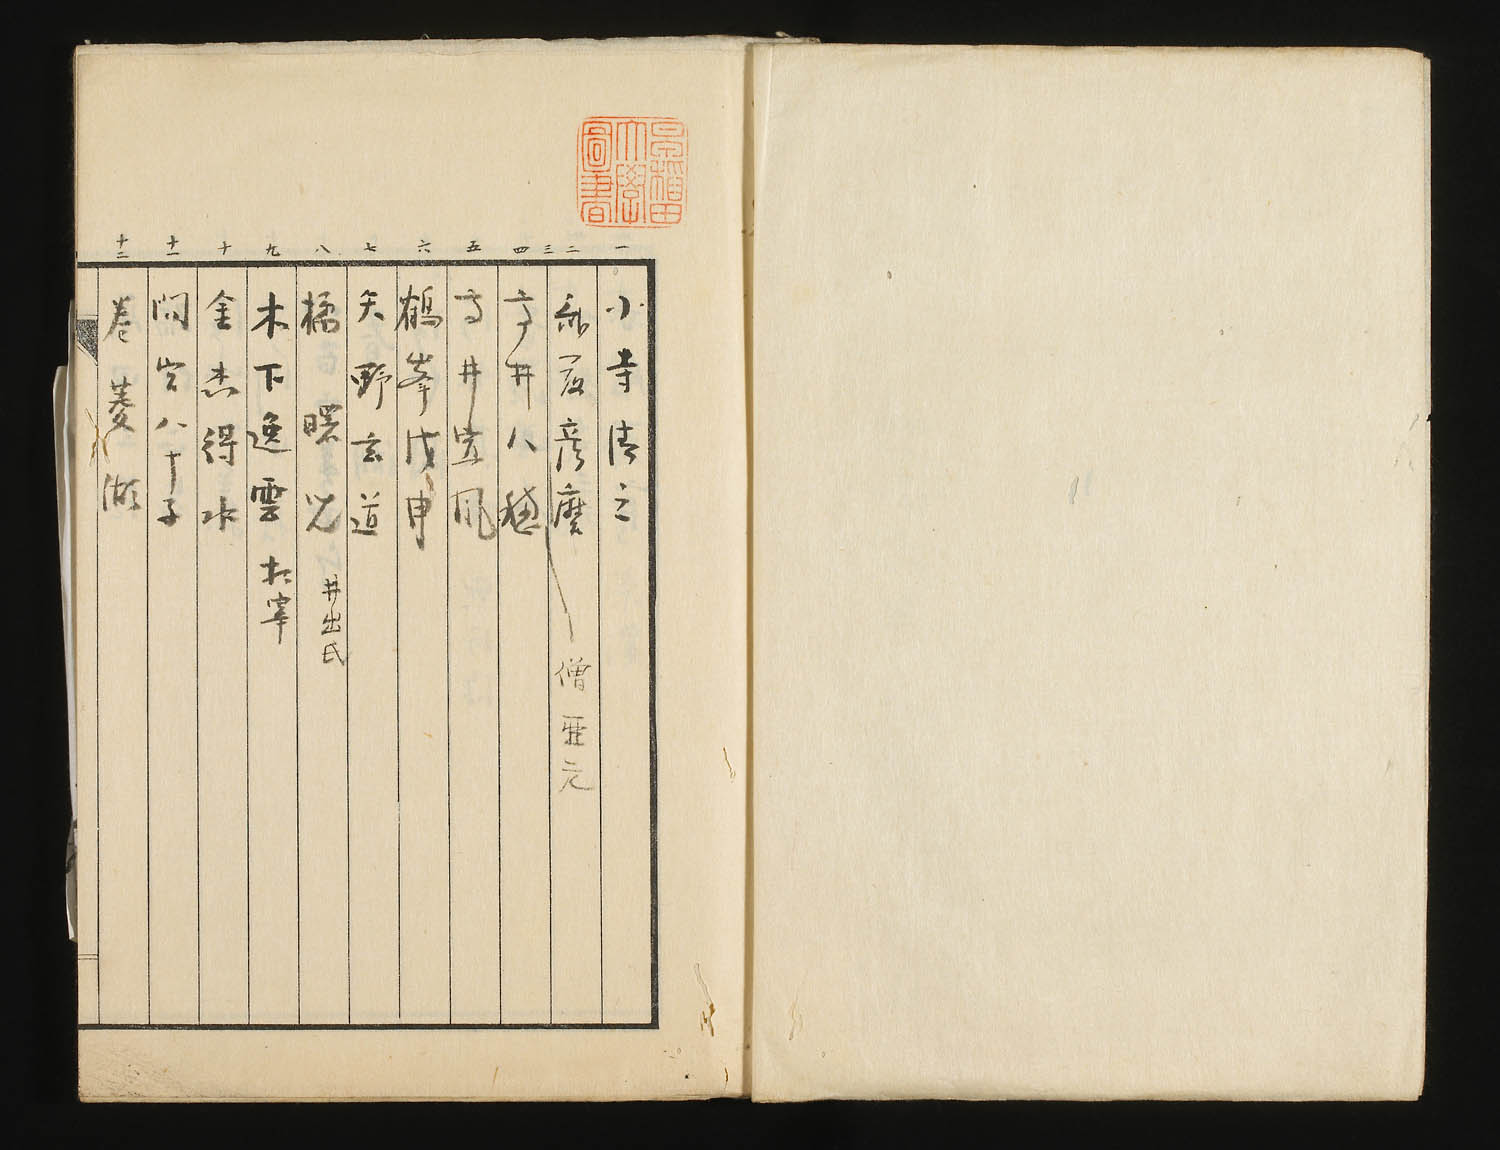 早稲田大學圖書
一 二 三 四 五 六 七 八 九 十 十一 十二
小寺清之
彦麿
僧 亜元
高井八穂
高井宣風
鶴峯戊申
矢野玄道
橘 曙覧 井出氏
木下逸雲 相宰
金 得水
間宮八十子
巻 菱湖